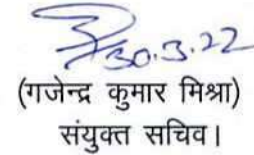 30.3.22
(गजेन्द्र कुमार मिश्रा)
संयुक्त सचिव।